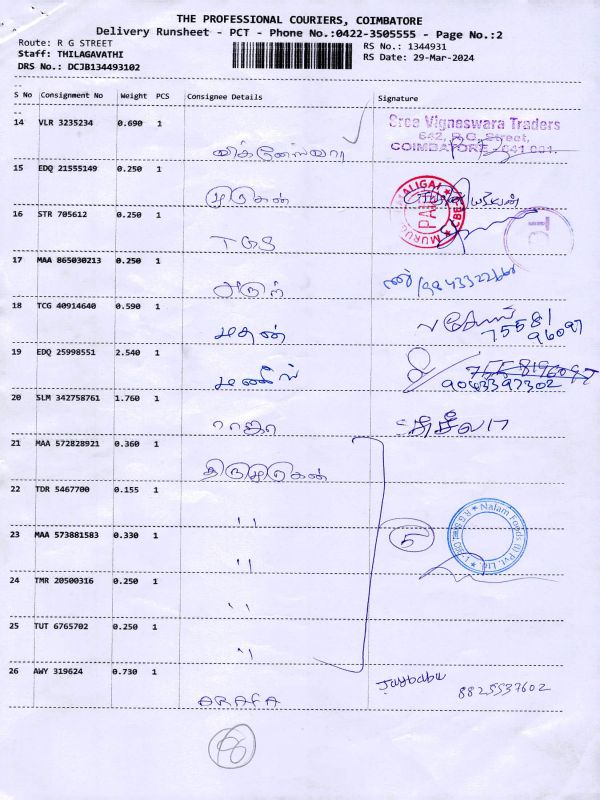 THE PROFESSIONAL COURIERS, COIMBATORE
Delivery Runsheet - PCT - Phone No.:0422-3505555 - Page No.:2
Route: R G STREET
RS No.: 1344931
Staff: THILAGAVATHI
RS Date: 29-Mar-2024
DRS No.: DCJB134493102
S No Consignment No Weight PCS Consignee Details Signature
14 VLR 3235234 0.690 1
Sree Vigneswara Traders
642, R.G. Street,
COIMBATORE - 641 001.
விக்னேஸ்வரா
15 EDQ 21555149 0.250 1
முருகன்
16 STR 705612 0.250 1
TGS
17 MAA 865030213 0.250 1
அருள்
18 TCG 40914640 0.590 1
மதன்
75581
96097
19 EDQ 25998551 2.540 1
7558196097
9043397302
20 SLM 342758761 1.760 1
ராஜா
21 MAA 572828921 0.360 1
திருமுருகன்
22 TDR 5467700 0.155 1
''
23 MAA 573881583 0.330 1
5
Nalam Foods (I) Pvt. Ltd.
''
24 TMR 20500316 0.250 1
''
25 TUT 6765702 0.250 1
''
26 AWY 319624 0.730 1
Jaybabu
8825537602
ARAFA